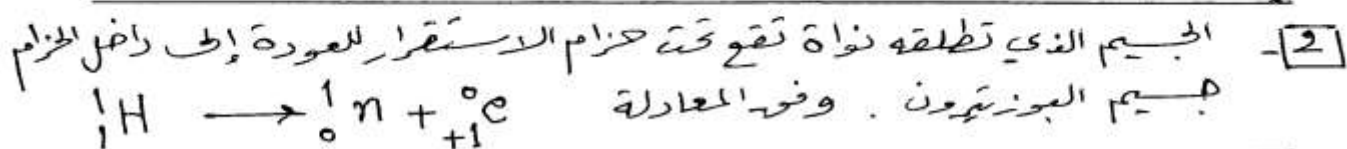 2- الجسيم الذي تطلقه نواة تقع تحت حزام الاستقرار للعودة إلى داخل الحزام
جسيم البوزيترون . وفق المعادلة ¹₁H → ¹₀n + ⁰₊₁e